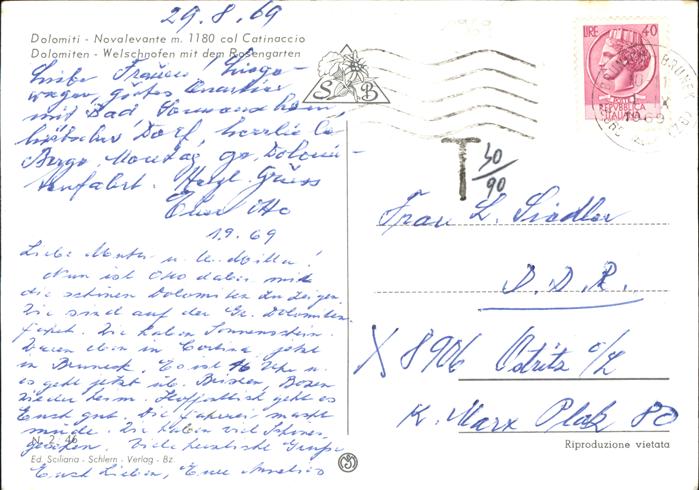 29.8.69
Dolomiti - Novalevante m. 1180 col Catinaccio
Dolomiten - Welschnofen mit dem Rosengarten
Liebe
wegen, gutes Quartier
mit Bad
Dorf, herrliche
Berge. Montag gr. Dolomi-
tenfahrt. Herzl. Grüsse
Euer Otto
1.9.69
Liebe Mutter u.
Nun ist Otto dabei mir
die schönen Dolomiten zu zeigen.
Wir sind auf der Gr. Dolomiten
fahrt. Wir haben Sonnenschein.
Waren eben in Cortina, jetzt
in Bruneck. Es ist 16 Uhr u.
es geht jetzt üb. Brixen, Bozen
wieder heim. Hoffentlich geht es
Euch gut. Die Fahrerei macht
müde. Wir haben viel Schönes
gesehen. Viele herzliche Grüße
Euch Lieben, Eure
N. 2-46
Ed. Sciliaria - Schlern - Verlag - Bz.
S B
LIRE 40
POSTE
REPVBBLICA
ITALIANA
1969
T 50/90
Frau L. Siedler
D.D.R.
X 8906 Ostritz o/L
K. Marx Platz 80
Riproduzione vietata